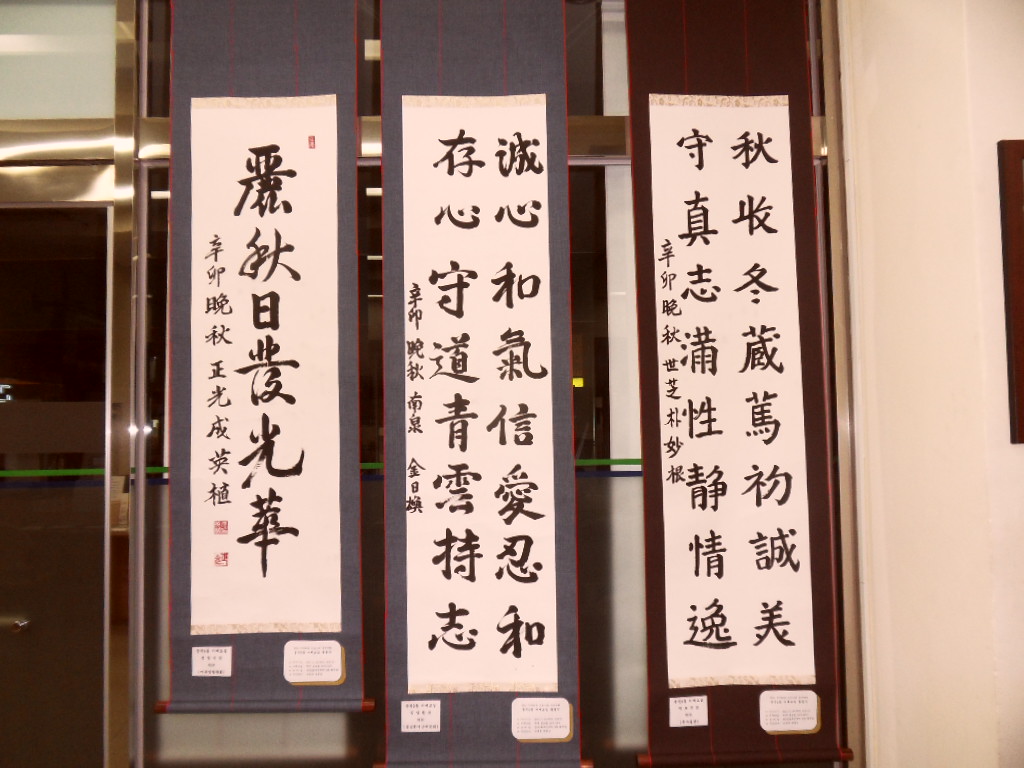 秋收冬蔵篤初誠美
守真志満性静情逸
辛卯晚秋 世芝 朴妙根
誠心和氣信愛忍和
存心守道青雲持志
辛卯晚秋 南泉 金日煥
麗秋日發光華
辛卯晚秋 正光 成英植